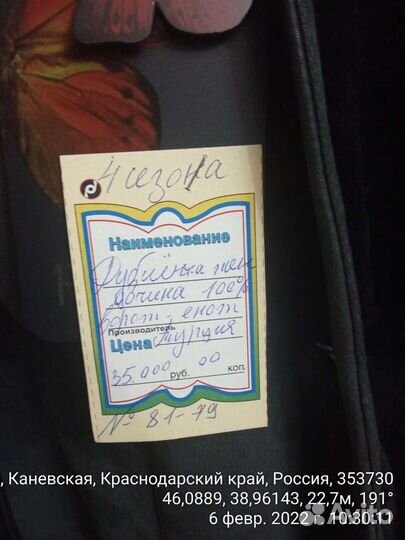 4 сезона
Наименование
Дублёнка жен
овчина 100%
ворот - енот
Производитель
Цена Турция
35.000 руб. 00 коп.
№ 81-79
, Каневская, Краснодарский край, Россия, 353730
46,0889, 38,96143, 22,7м, 191°
6 февр. 2022 г. 10:30:11
Avito